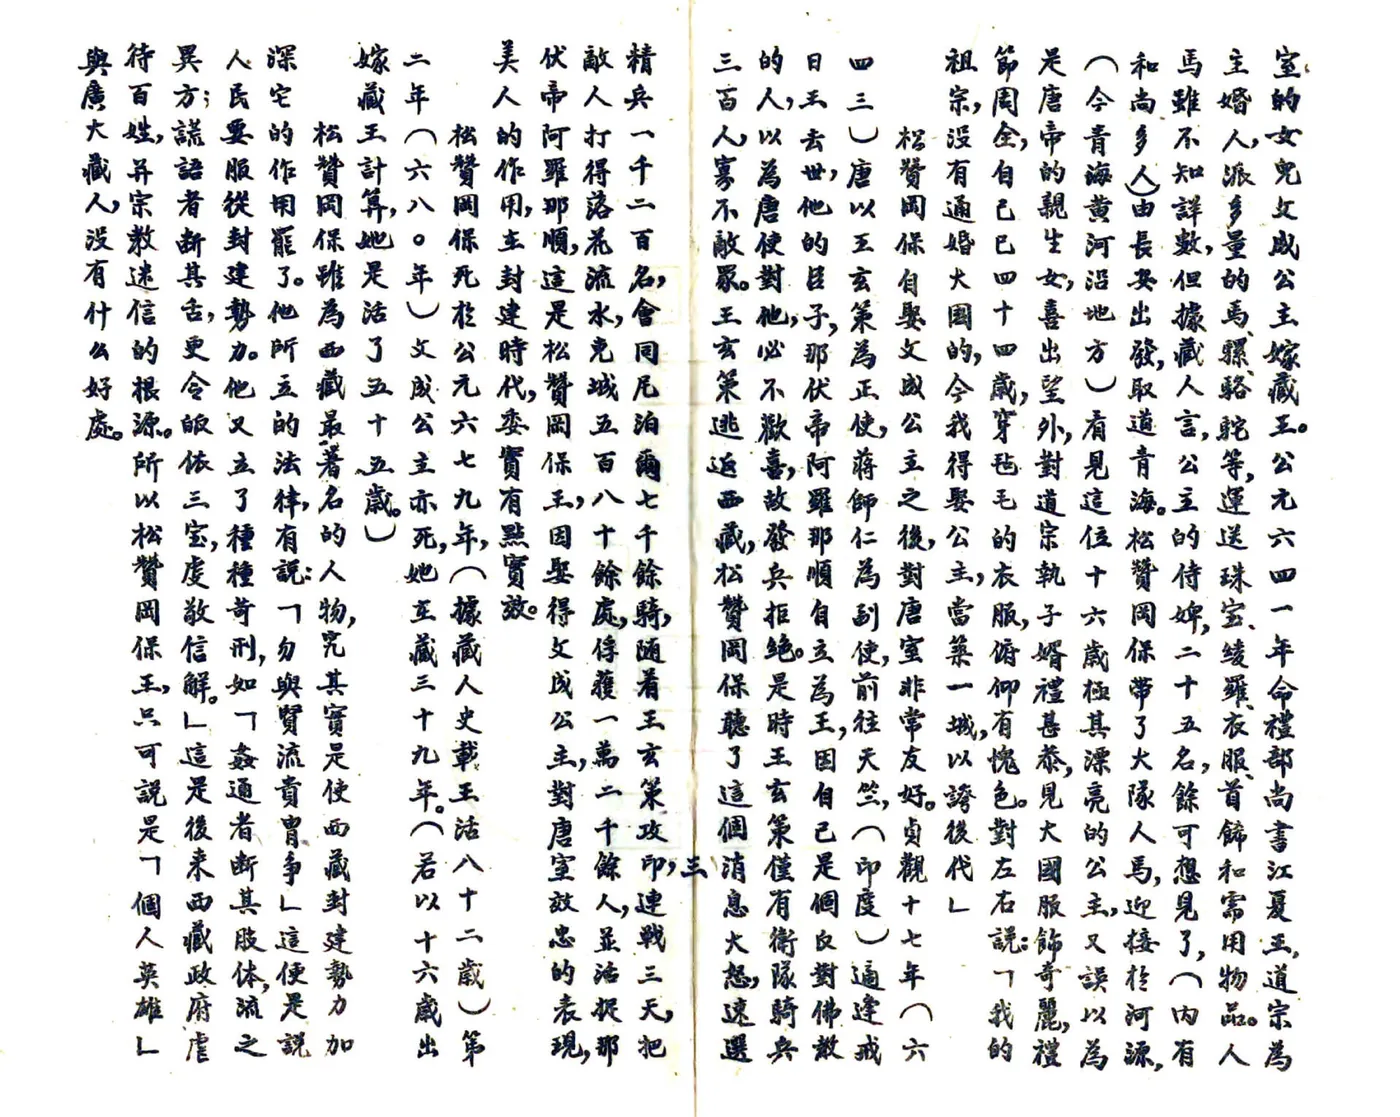 室的女兒文成公主嫁藏王。公元六四一年命禮部尚書江夏王,道宗為
主婚人,派多量的馬、騾、駱駝等,運送珠宝、綾羅、衣服、首飾和需用物品。人
馬雖不知詳數,但據藏人言,公主的侍婢,二十五名,餘可想見了,(內有
和尚多人)由長安出發,取道青海。松贊岡保帶了大隊人馬,迎接於河源,
(今青海黃河沿地方)看見這位十六歲極其漂亮的公主,又誤以為
是唐帝的親生女,喜出望外,對道宗執子婿禮甚恭,見大國服飾奇麗,禮
節周全,自己已四十四歲,穿毡毛的衣服,俯仰有愧色。對左右說:「我的
祖宗,沒有通婚大國的,今我得娶公主,當築一城,以誇後代」
松贊岡保自娶文成公主之後,對唐室非常友好。貞觀十七年(六
四三)唐以王玄策為正使,蔣師仁為副使,前往天竺,(印度)適逢戒
日王去世,他的臣子,那伏帝阿羅那順自立為王,因自己是個反對佛教
的人,以為唐使對他,必不歡喜,故發兵拒絕。是時王玄策僅有衛隊騎兵
三百人,寡不敵眾。王玄策逃返西藏,松贊岡保聽了這個消息大怒,速選
精兵一千二百名,會同尼泊爾七千餘騎,随着王玄策攻印,連戰三天,把
敵人打得落花流水,克城五百八十餘處,俘獲一萬二千餘人,並活捉那
伏帝阿羅那順,這是松贊岡保王,因娶得文成公主,對唐室效忠的表現,
美人的作用,在封建時代,委實有點實效。
松贊岡保死於公元六七九年,(據藏人史載王活八十二歲)第
二年(六八〇年)文成公主亦死,她在藏三十九年。(若以十六歲出
嫁藏王計算,她是活了五十五歲。)
松贊岡保雖為西藏最著名的人物,究其實是使西藏封建勢力加
深它的作用罷了。他所立的法律,有說:「勿與賢流貴胄爭」這便是說
人民要服從封建勢力。他又立了種種苛刑,如「姦通者断其肢体,流之
異方;謊語者断其舌,更令皈依三宝,虔敬信解。」這是後来西藏政府虐
待百姓,并宗教迷信的根源。所以松贊岡保王,只可説是「個人英雄」
與廣大藏人,没有什么好處。